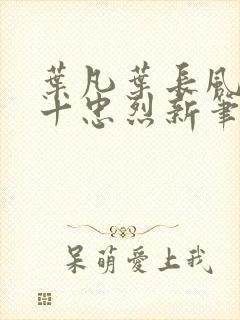 葉凡葉長風
十忠烈新筆
呆萌愛上我